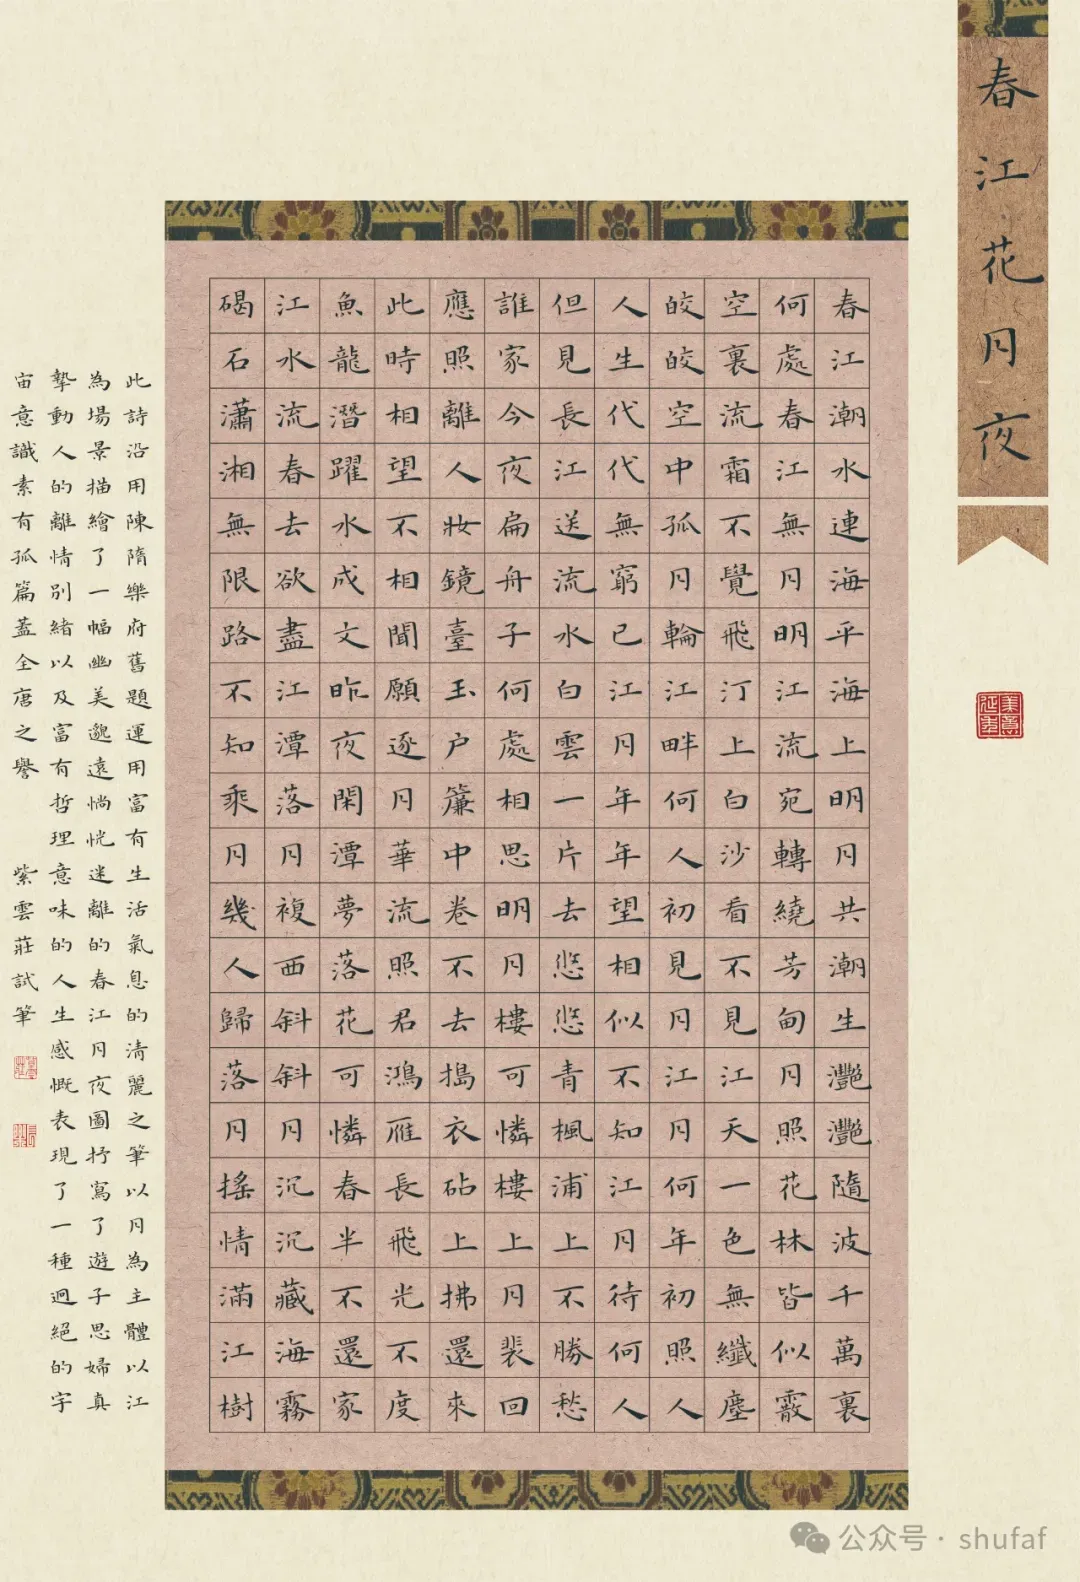 春江花月夜
春江潮水連海平海上明月共潮生灧灧隨波千萬裏
何處春江無月明江流宛轉繞芳甸月照花林皆似霰
空裏流霜不覺飛汀上白沙看不見江天一色無纖塵
皎皎空中孤月輪江畔何人初見月江月何年初照人
人生代代無窮已江月年年望相似不知江月待何人
但見長江送流水白雲一片去悠悠青楓浦上不勝愁
誰家今夜扁舟子何處相思明月樓可憐樓上月裴回
應照離人妝鏡臺玉户簾中卷不去搗衣砧上拂還來
此時相望不相聞願逐月華流照君鴻雁長飛光不度
魚龍潛躍水成文昨夜閑潭夢落花可憐春半不還家
江水流春去欲盡江潭落月複西斜斜月沉沉藏海霧
碣石瀟湘無限路不知乘月幾人歸落月搖情滿江樹
此詩沿用陳隋樂府舊題運用富有生活氣息的清麗之筆以月為主體以江
為場景描繪了一幅幽美邈遠惝恍迷離的春江月夜圖抒寫了遊子思婦真
摯動人的離情別緒以及富有哲理意味的人生感慨表現了一種迥絕的宇
宙意識素有孤篇蓋全唐之譽 紫雲莊試筆
公众号 · shufaf